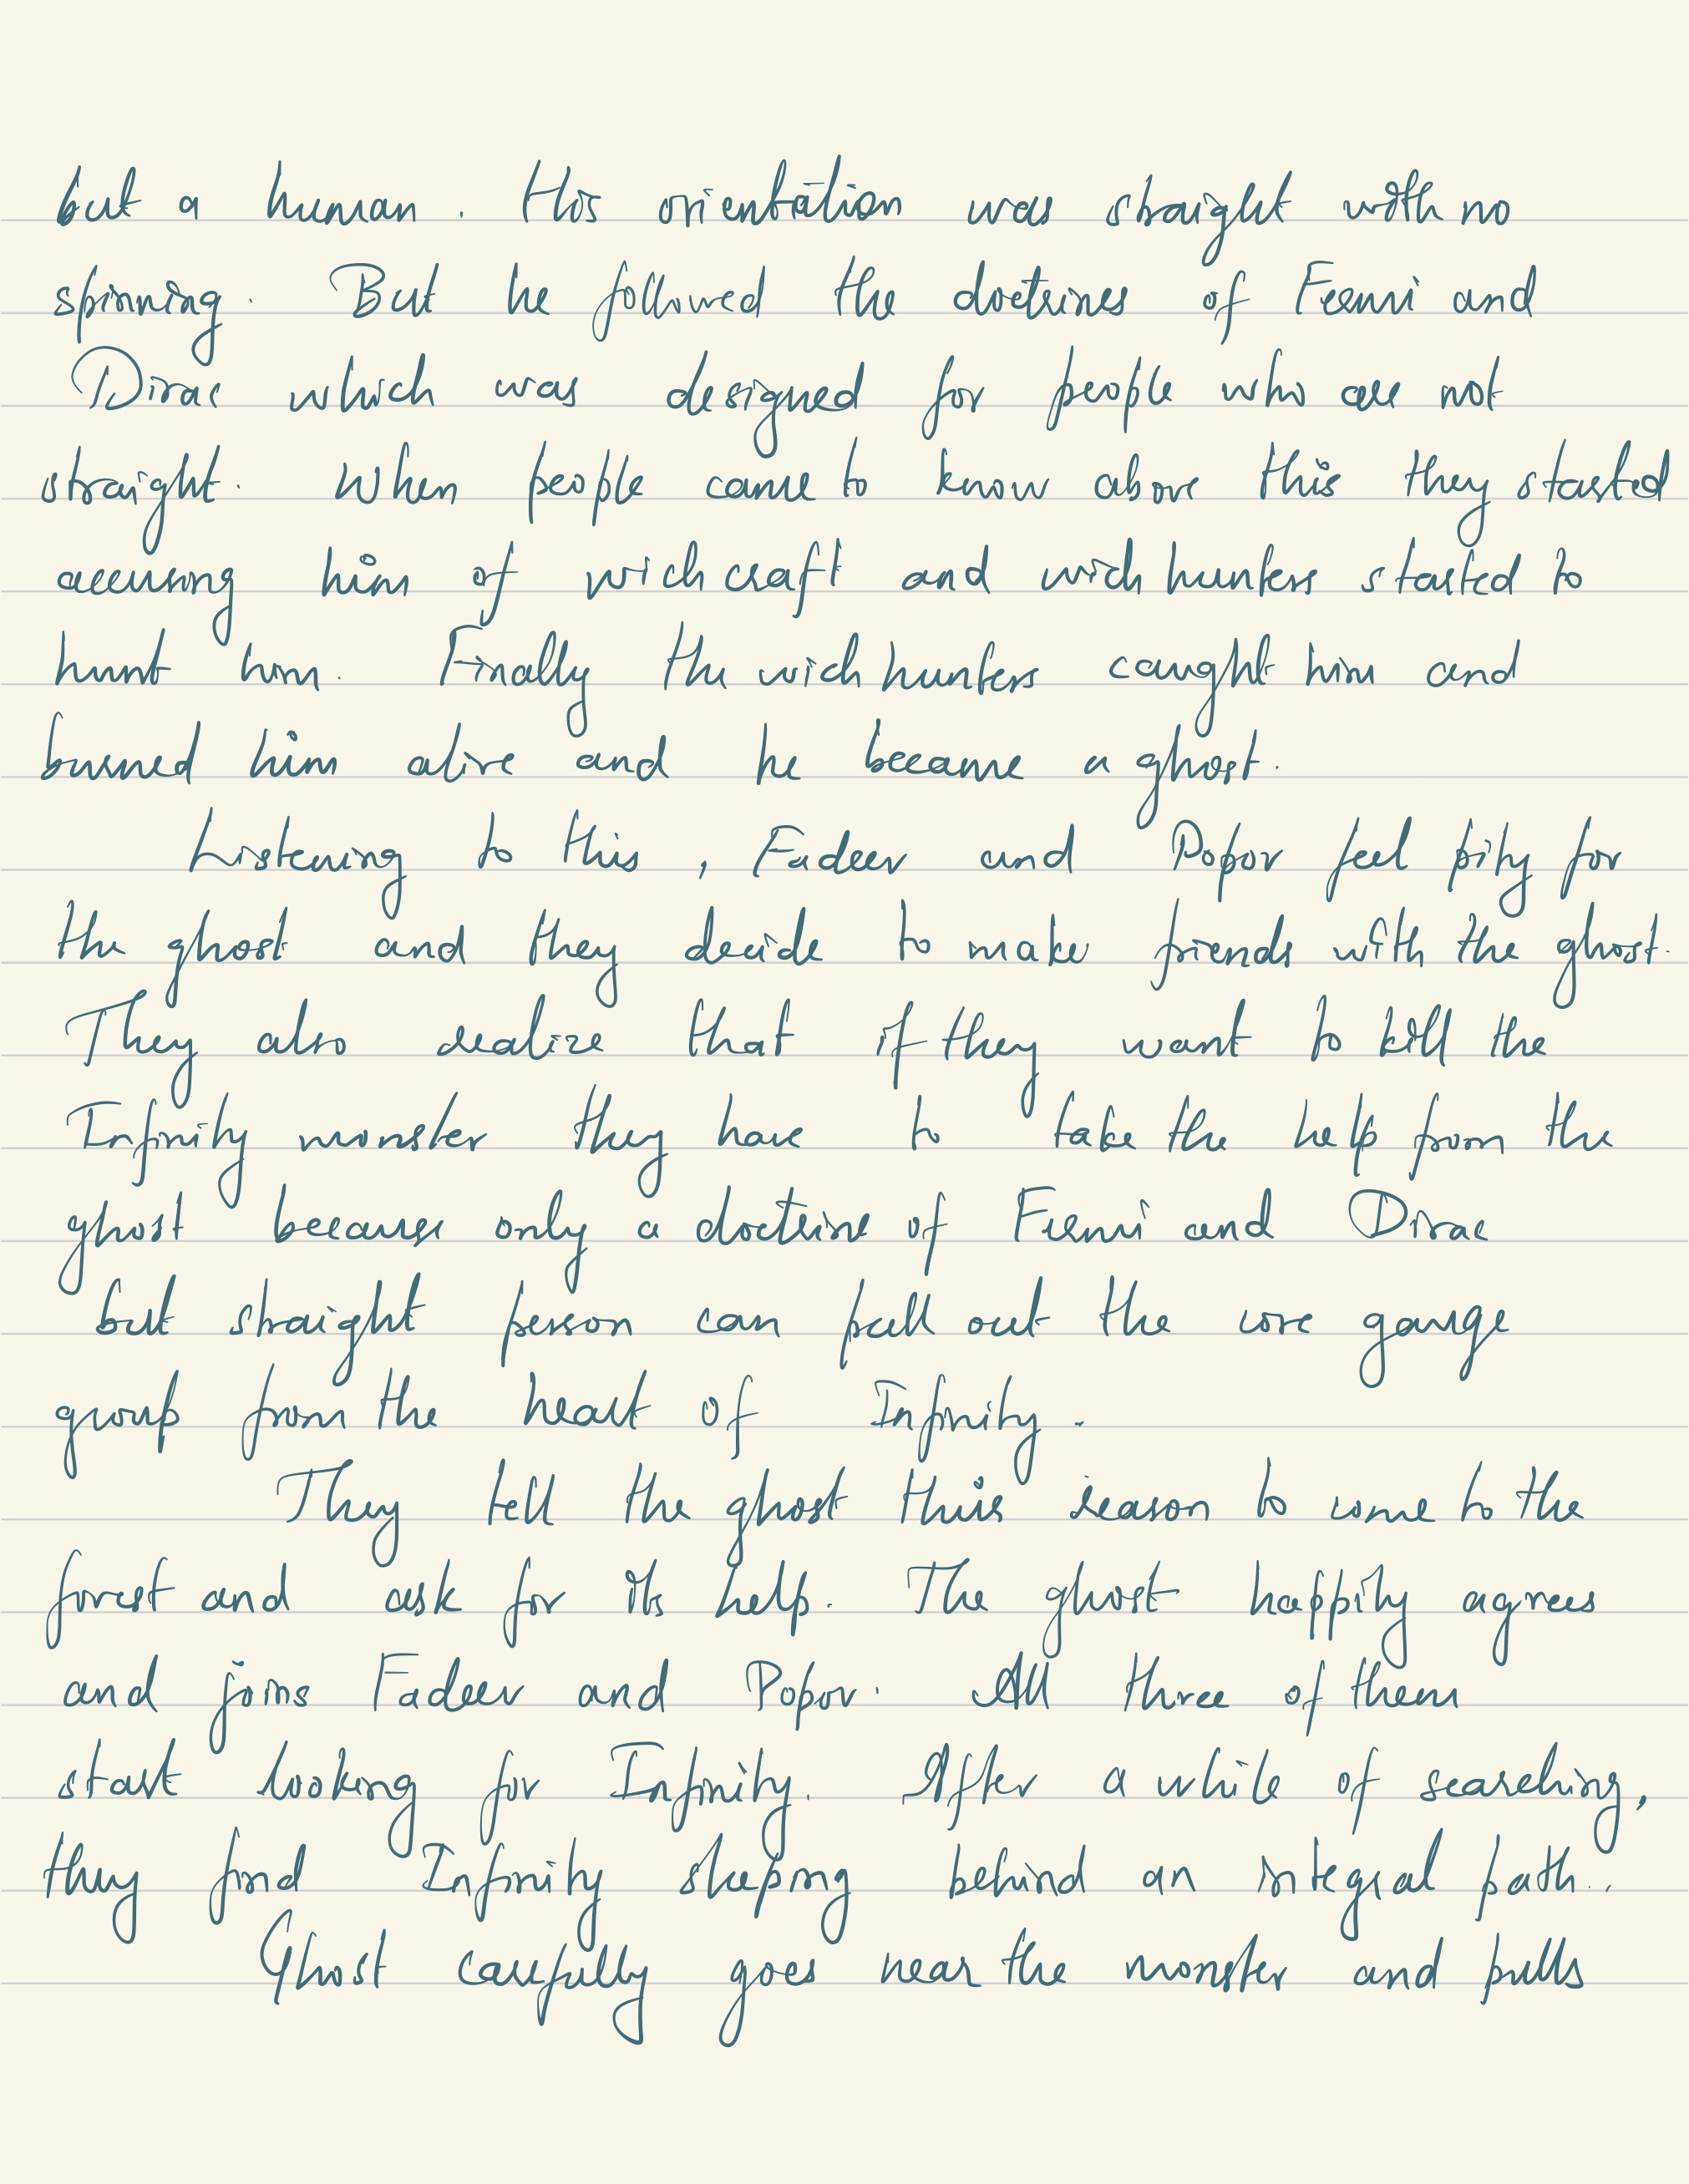 but a human. His orientation was straight with no
spinning. But he followed the doctrines of Fermi and
Dirac which was designed for people who are not
straight. When people came to know above this they started
accusing him of wichcraft and wich hunters started to
hunt him. Finally the wich hunters caught him and
burned him alive and he became a ghost.
Listening to this, Fadeev and Popov feel pity for
the ghost and they decide to make friends with the ghost.
They also realize that if they want to kill the
Infinity monster they have to take the help from the
ghost because only a doctrine of Fermi and Dirac
but straight person can pull out the core gauge
group from the heart of Infinity.
They tell the ghost thuis reason to come to the
forest and ask for its help. The ghost happily agrees
and joins Fadeev and Popov. All three of them
start looking for Infinity. After a while of searching,
they find Infinity sleeping behind an integral path..
Ghost carefully goes near the monster and pulls